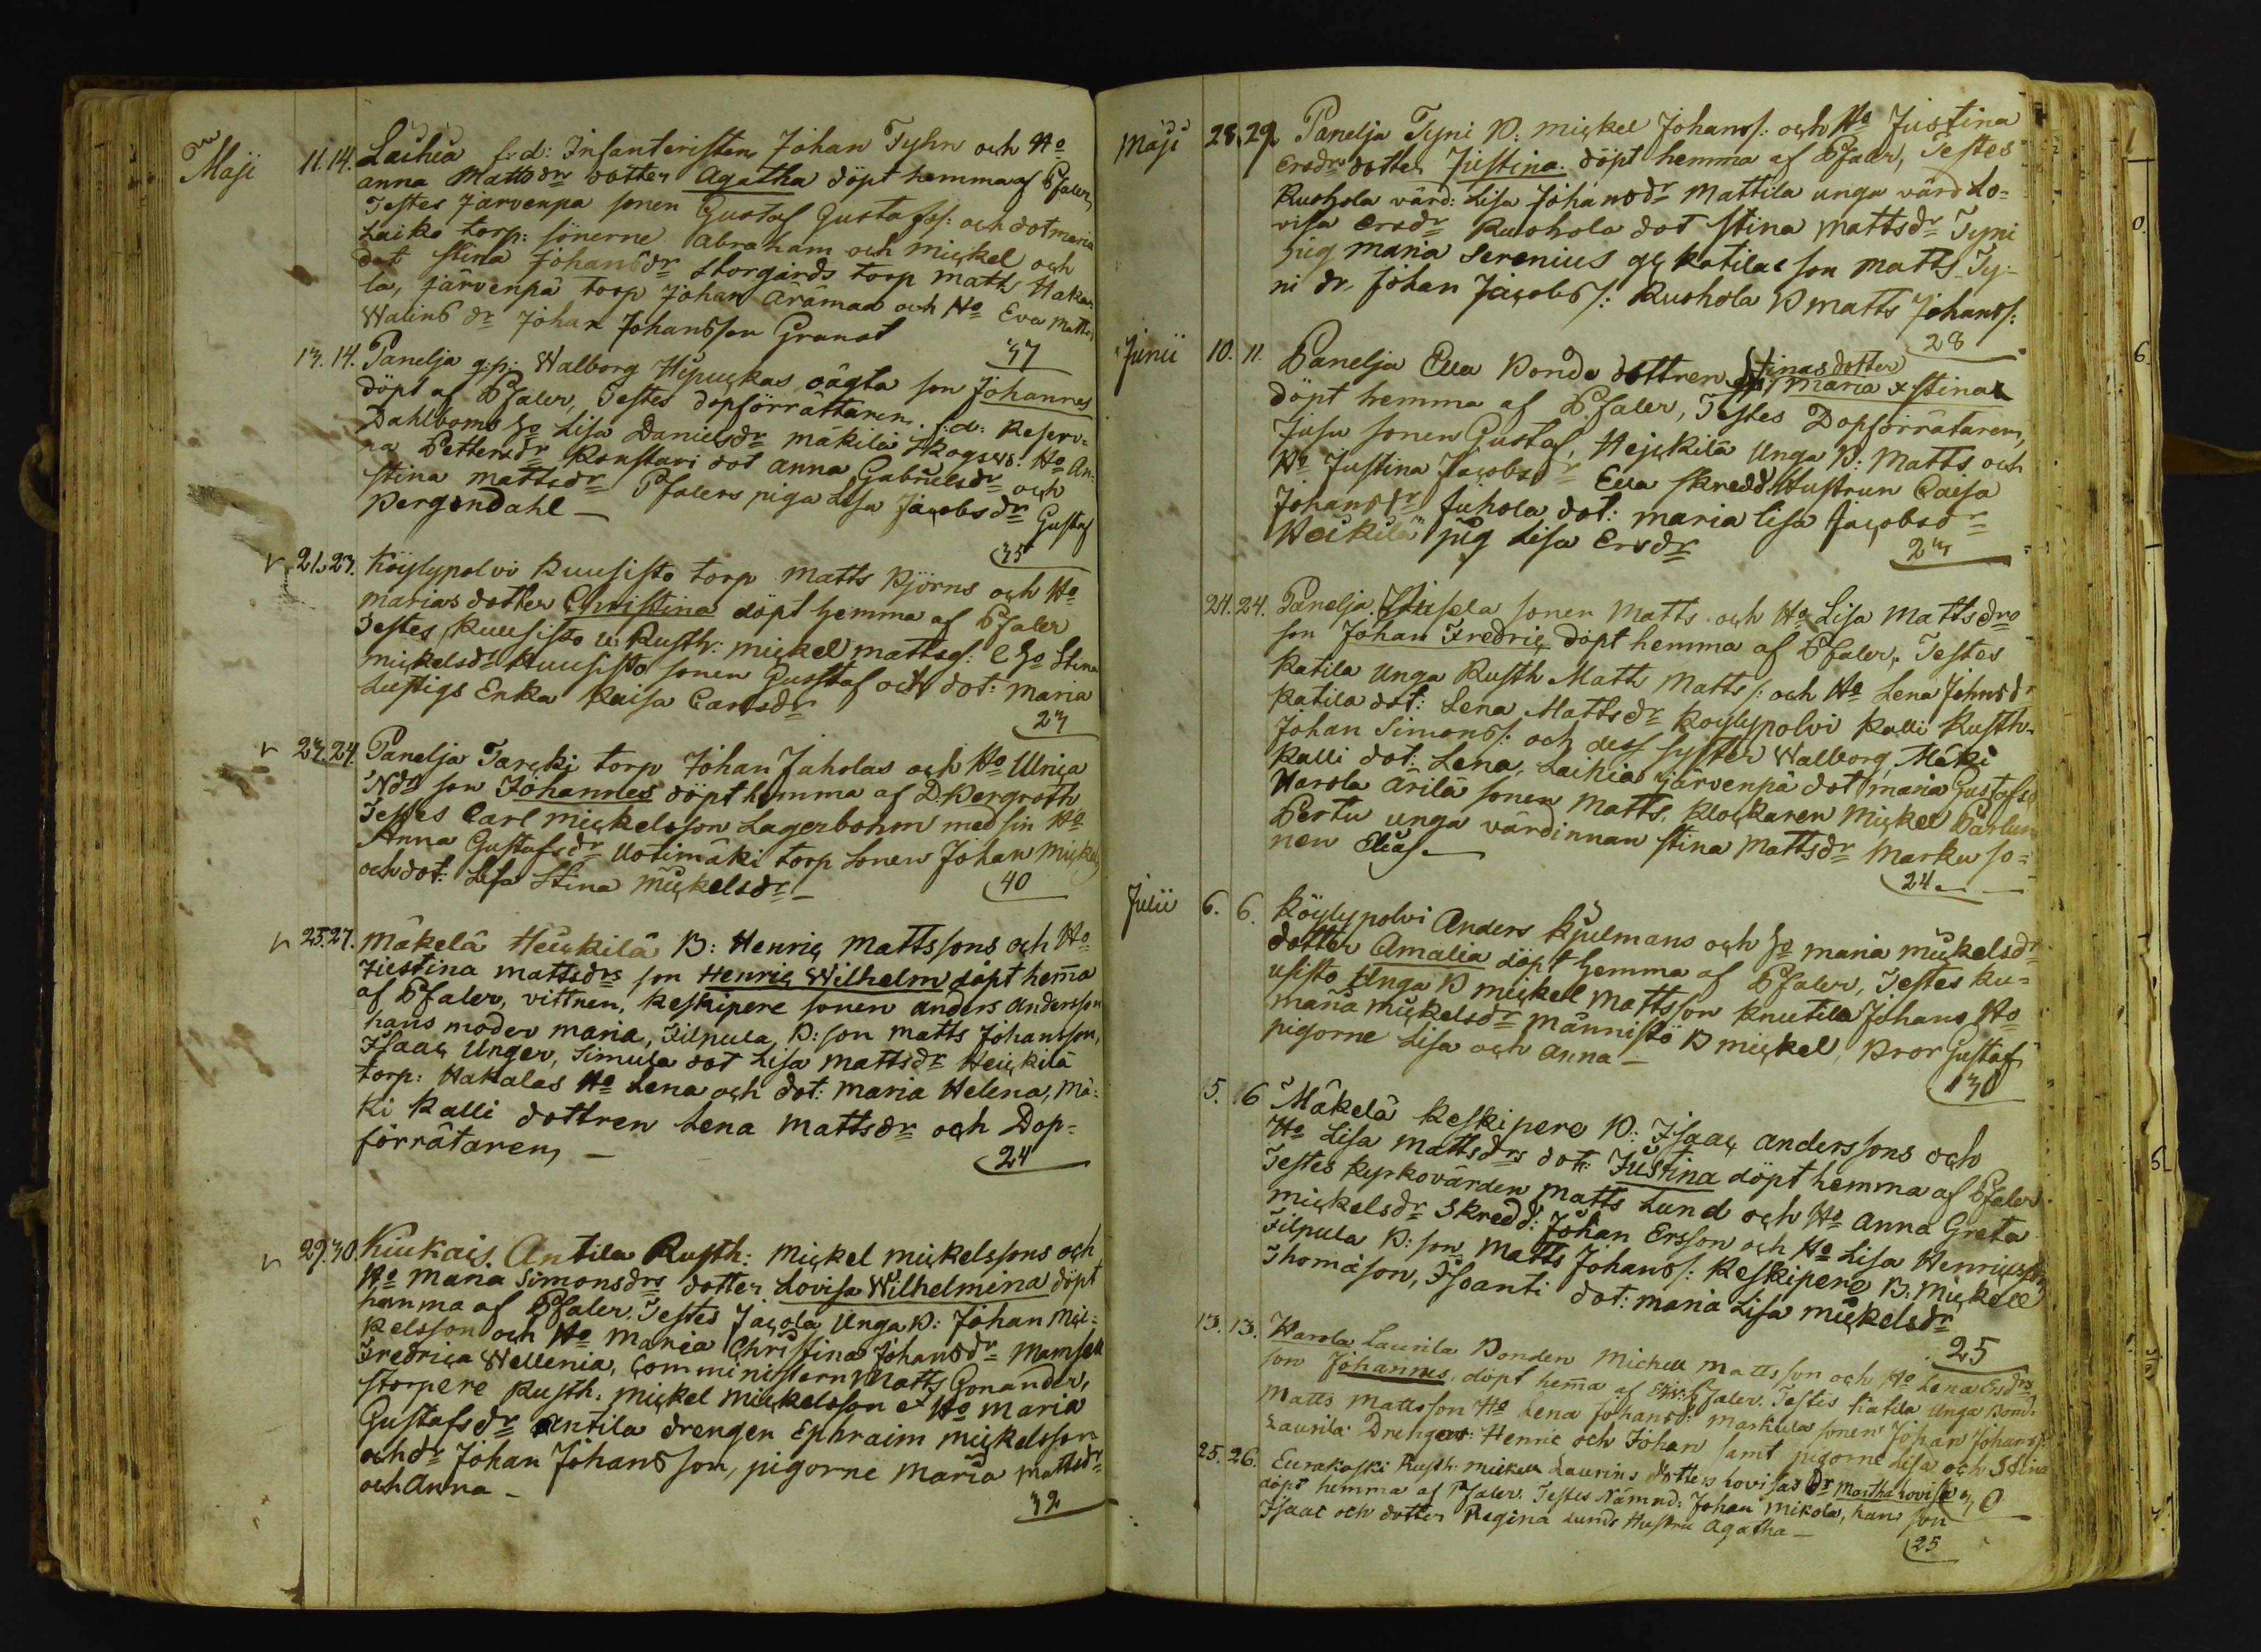 Maji 11. 14. Laihia f:d: Infanteristen Johan Tyhn och Ho
anna Mattsdrs dotter Agatha döpt hemma af Pfaler,
Testes Järvenpa sonen Gustaf Gustafss: och dot maria
Laiko torp: sönerne Abraham och Mickel och
dot Stina Johansdr Storgårds torp Matts Haka-
la, Järvenpä torp Johan Äråmaa och Ho Eva Matts
Walins dr Johan Johansson Granat
37
13. 14. Panelja g:p: Walborg oägta son Johannes
döpt af Pfaler, Testes dopförrättaren, f:d: Reserv-
Dahlboms Ho Lisa Danielsdr Mäkilä Skogsv: Ho An-
na Pettersdr Ronstari dot Anna Gabrielsdr och
Stina mattsdr Pfalers piga Lisa Jacobsdr Gustaf
Bergendahl —
35
21. 23. Köylypolvi Kuusisto torp Matts Björns och Ho
Marias dotter Christina döpt hemma af Pfaler
Testes, Kuusisto u: Rusth: Mickel mattss: & Ho Stina
Mickelsdr Kuusisto sonen Gustaf och dot: Maria
Lustigs Enka Kaisa Carlsdr
23
23. 24. Panelja Tarcki torp Johan Juholas och Ho Ulrica
Ndrs son Johannes döpt hemma af D. Bergroth
Testes Carl Mickelsson Lagerbohm med sin Ho
Anna Gustafsdr Uotimäki torp Sonen Johan Mickels
och dot: Lisa Stina Mickelsdr —
40
25. 27. Mäkelä Heickilä B: Henric Mattssons och Ho
Justina mattsdrs son Henric Wilhelm döpt hema
af Pfaler, vittnen, Keskipere sonen anders Andersson
hans moder maria, Filpula B: son Matts Johansson,
Isaac Unger, Simula dot Lisa Mattsdr Heickilä
torp: Hakalas Ho Lena och dot: Maria Helena, Mä-
ki Kalli dottren Lena Mattsdr och Dop-
förrätaren, —
24
29. 30. Kiukais. Antila Rusth: Mickel Mickelssons och
Ho Maria Simonsdrs dotter Lovisa Wilhelmina döpt
hemma af Pfaler. Testes Jacola Unga B: Johan Mic-
kelsson och Ho Maria Christina Johansdr Mamsell
Fredrica Wellenia, Comministern Matts Gonander,
Storpere Rusth: Mickel Mickelsson et Ho Maria
Gustafsdr Antila drengen Ephraim Mickelsson
och dr Johan Johansson, pigorne Maria Mattsdr
och Anna —
32
Maji 28. 29. Panelja Tyni B: Mickel Johanss: och Ho Justina
Ersdrs dotter Justina döpt hemma af Pfaler, Testes
Ruohola värd: Lisa Johansdr Mattila unga värd Lo-
visa Ersdr Ruohola dot Stina Mattsdr Tyni
pig Maria Serenius Katilas son Matts Ty-
ni dr, Johan Jacobs: Ruohola B Matts Johanss:
28
Junii 10. 11. Panelja Eva Bonde dottren Stinas dotter
Maria x Stina
döpt hemma af Pfaler, Testes Dopförrätaren,
Jusu sonen Gustaf, Heickilä Unga B: Matts och
Ho Justina Jacobsdr Eva skredd Hustrun Caisa
Johansdr Juhola dot: Maria Lisa Jacobsdr
Heickilä pig Lisa Ersdr
23
24. 24. Panelja sonen Matts och Ho Lisa Mattsdrs
son Johan Fredric döpt hemma af Pfaler, Testes
Katila Unga Rusth Matts Matts: och Ho Lena Johnsdr
Katila dot: Lena Mattsdr Koylypolvi Kalli Rusth-
Johan Simons: och dess syster Walborg, Mäki
Kalli dot: Lena, Laihia Järvenpä dot maria Gustafsd
Harola Ärilä sonen Matts, Klockaren Mickel
Pertu unga värdinnan Stina Mattsdr Marku so-
nen Elias —
24
Julii 6. 6. Köylypolvi Anders Kjulmans och Ho Maria Mickelsdrs
dotter Amalia döpt hemma af Pfaler, Testes Ku-
usisto Unga B Mickel Mattsson Knutila Johans Ho
maria Mickelsdr Männistö B Mickel, Bror Gustaf
pigorne Lisa och Anna —
30
5. 6 Mäkelä Keskipere B: Isaac Anderssons och
Ho Lisa Mattsdrs dot: Justina döpt hemma af Pfaler
Testes Kyrkovärden Matts Lund och Ho Anna Greta
Mickelsdr Skredd: Johan Ersson och Ho Lisa Henricsdr
Filpula B: son Matts Johans: Keskipere B: Mickel
Thomäson, Isoanti dot: Maria Lisa Mickelsdr
25
13. 13. Harola Laurila Bonden Michell Mattsson och Ho Lena Ersdrs
son Johannes, döpt hema af Pfaler. Testes Katila Unga Bond:
Matts Mattsson Ho Lena Johansdr: Markula sonen Johan Johans:
Laurila Drengar: Henric och Johan samt pigorne Lisa och Stina
30
25. 26. Eurakoski Rusth: Mickel Laurins dotters Lovisas Dr Martha Lovisa
döpt hemma af Pfaler. Testes Nämnd: Johan Mikola, hans son
Isaac och dotter Regina Lunds Hustru Agatha —
25